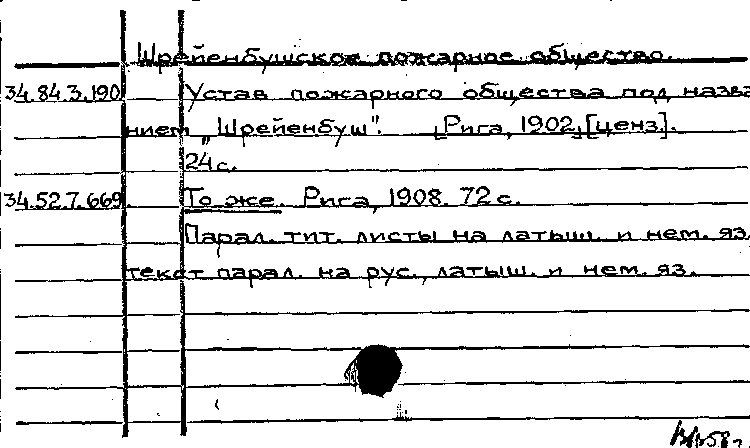 Шрейенбушское пожарное общество.
34.84.3.190 Устав пожарного общества под назва
нием „Шрейенбуш". [Рига, 1902], [ценз].
24 с.
34.52.7.669. То же. Рига, 1908. 72 с.
Парал. тит. листы на латыш. и нем. яз.
текст парал. на рус., латыш. и нем. яз.